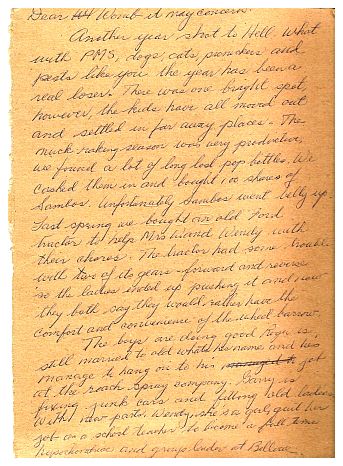 Dear Womb it may concern.
Another year shot to Hell. What
with PMS, dogs, cats, and
pests like you the year has been a
real loser. There was one bright spot,
however, the kids have all moved out
and settled in far away places. The
muck raking season was very productive,
we found a lot of long lost pop bottles. We
cashed them in and bought 100 shares of
Sambos. Unfortunately Sambos went belly up.
Last spring we bought an old Ford
tractor to help Mrs and Wendy with
their chores. The tractor had some trouble
with two of its gears - forward and reverse
so the ladies ended up pushing it and now
they both say they would rather have the
comfort and convenience of the wheel barrow.
The boys are doing good. is
still married to old whats his name and his
manage to hang on to his job
at the roach spray company. Garry is
fixing junk cars and fitting old ladies
with new parts. Wendy, she is a girl, quit her
job as a school teacher to become a full time
and group leader at